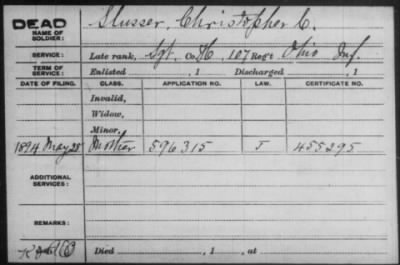 DEAD
NAME OF SOLDIER: Slusser, Christopher C.
SERVICE: Late rank, Sgt. Co. H, 107 Reg't Ohio Inf.
TERM OF SERVICE: Enlisted , 1 Discharged , 1
DATE OF FILING. CLASS. APPLICATION NO. LAW. CERTIFICATE NO.
Invalid,
Widow,
Minor,
1894 May 25 Mother 596315 J 455295
ADDITIONAL SERVICES:
REMARKS:
Died , 1 , at